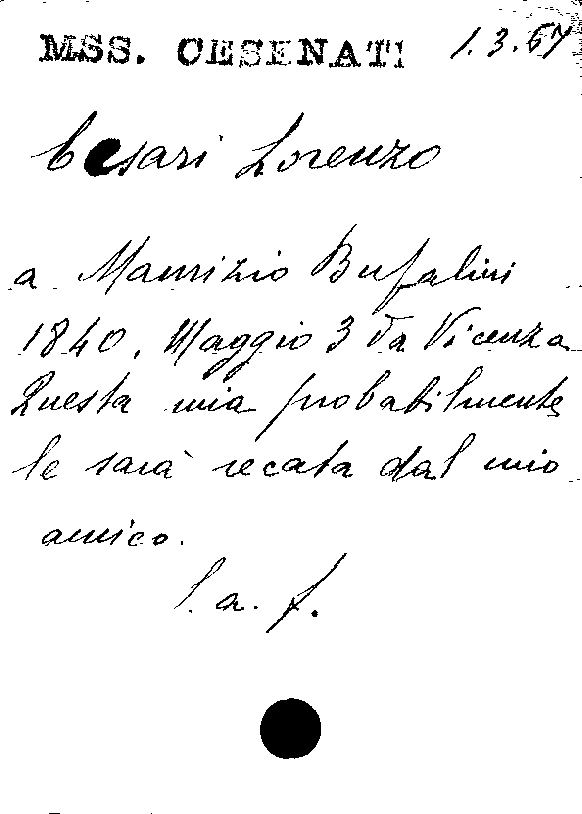 MSS. CESENATI 1.3.67
Cesari Lorenzo
a Maurizio Bufalini
1840, Maggio 3 da Vicenza
Questa mia probabilmente
le sarà recata dal mio
amico.
l. a. f.